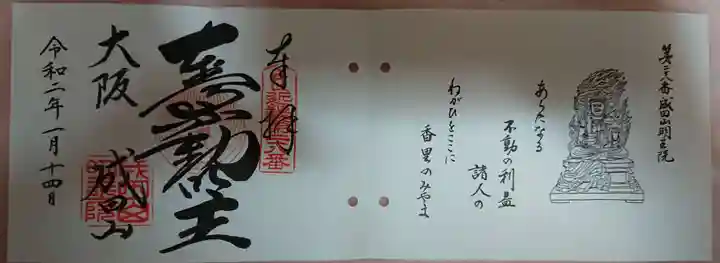 第二十八番成田山明王院
あらたなる
不動の利益
諸人の
わがひをここに
香里のみやま
奉拝
不動明王
大阪 成田山
令和二年一月十四日